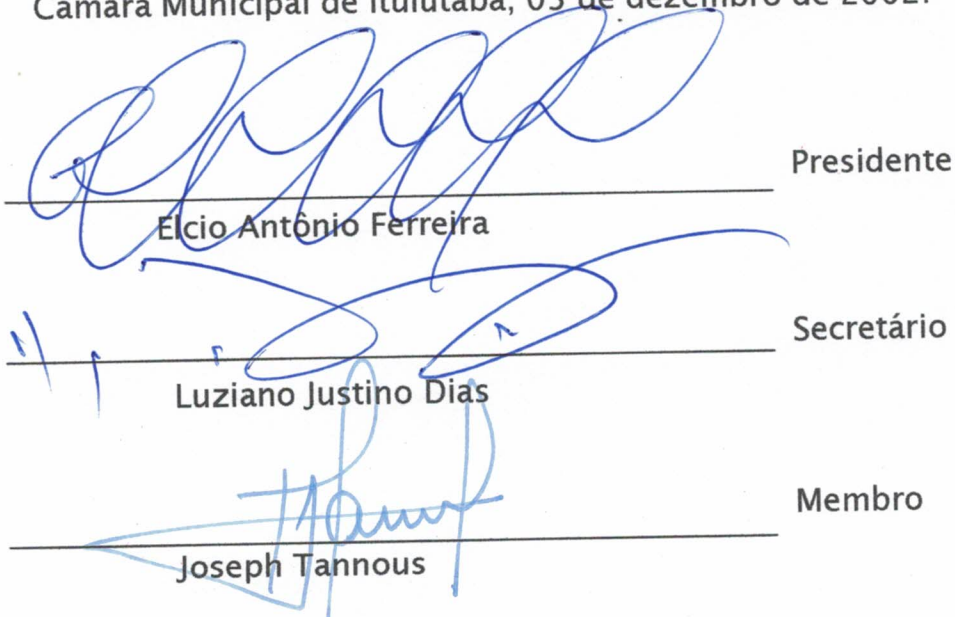 Câmara Municipal de Ituiutaba, 03 de dezembro de 2002.
Presidente
Elcio Antônio Ferreira
Secretário
Luziano Justino Dias
Membro
Joseph Tannous